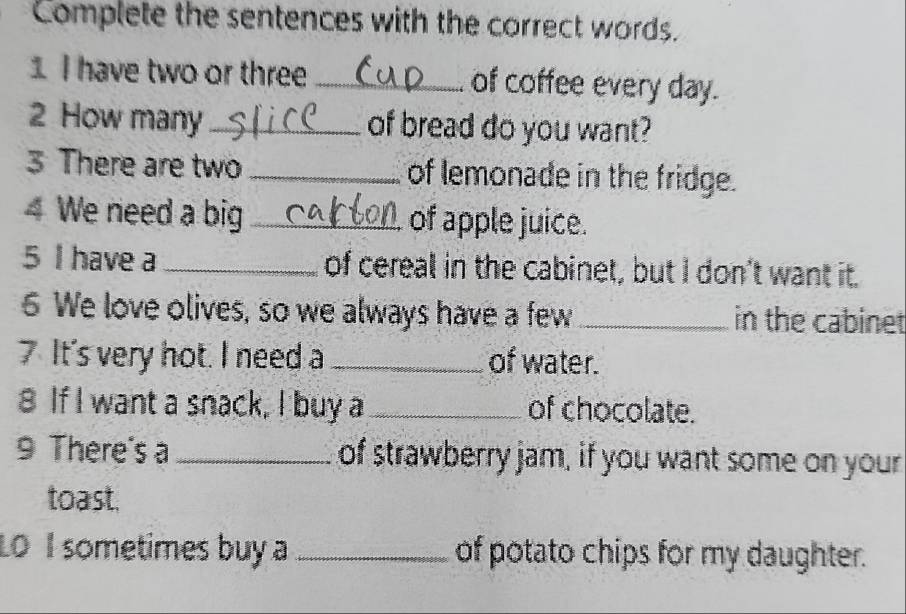 Complete the sentences with the correct words.
1 I have two or three cup of coffee every day.
2 How many slice of bread do you want?
3 There are two ____________ of lemonade in the fridge.
4 We need a big carton of apple juice.
5 I have a ____________ of cereal in the cabinet, but I don't want it.
6 We love olives, so we always have a few ____________ in the cabinet
7 It's very hot. I need a ____________ of water.
8 If I want a snack, I buy a ____________ of chocolate.
9 There's a ____________ of strawberry jam, if you want some on your
toast.
10 I sometimes buy a ____________ of potato chips for my daughter.